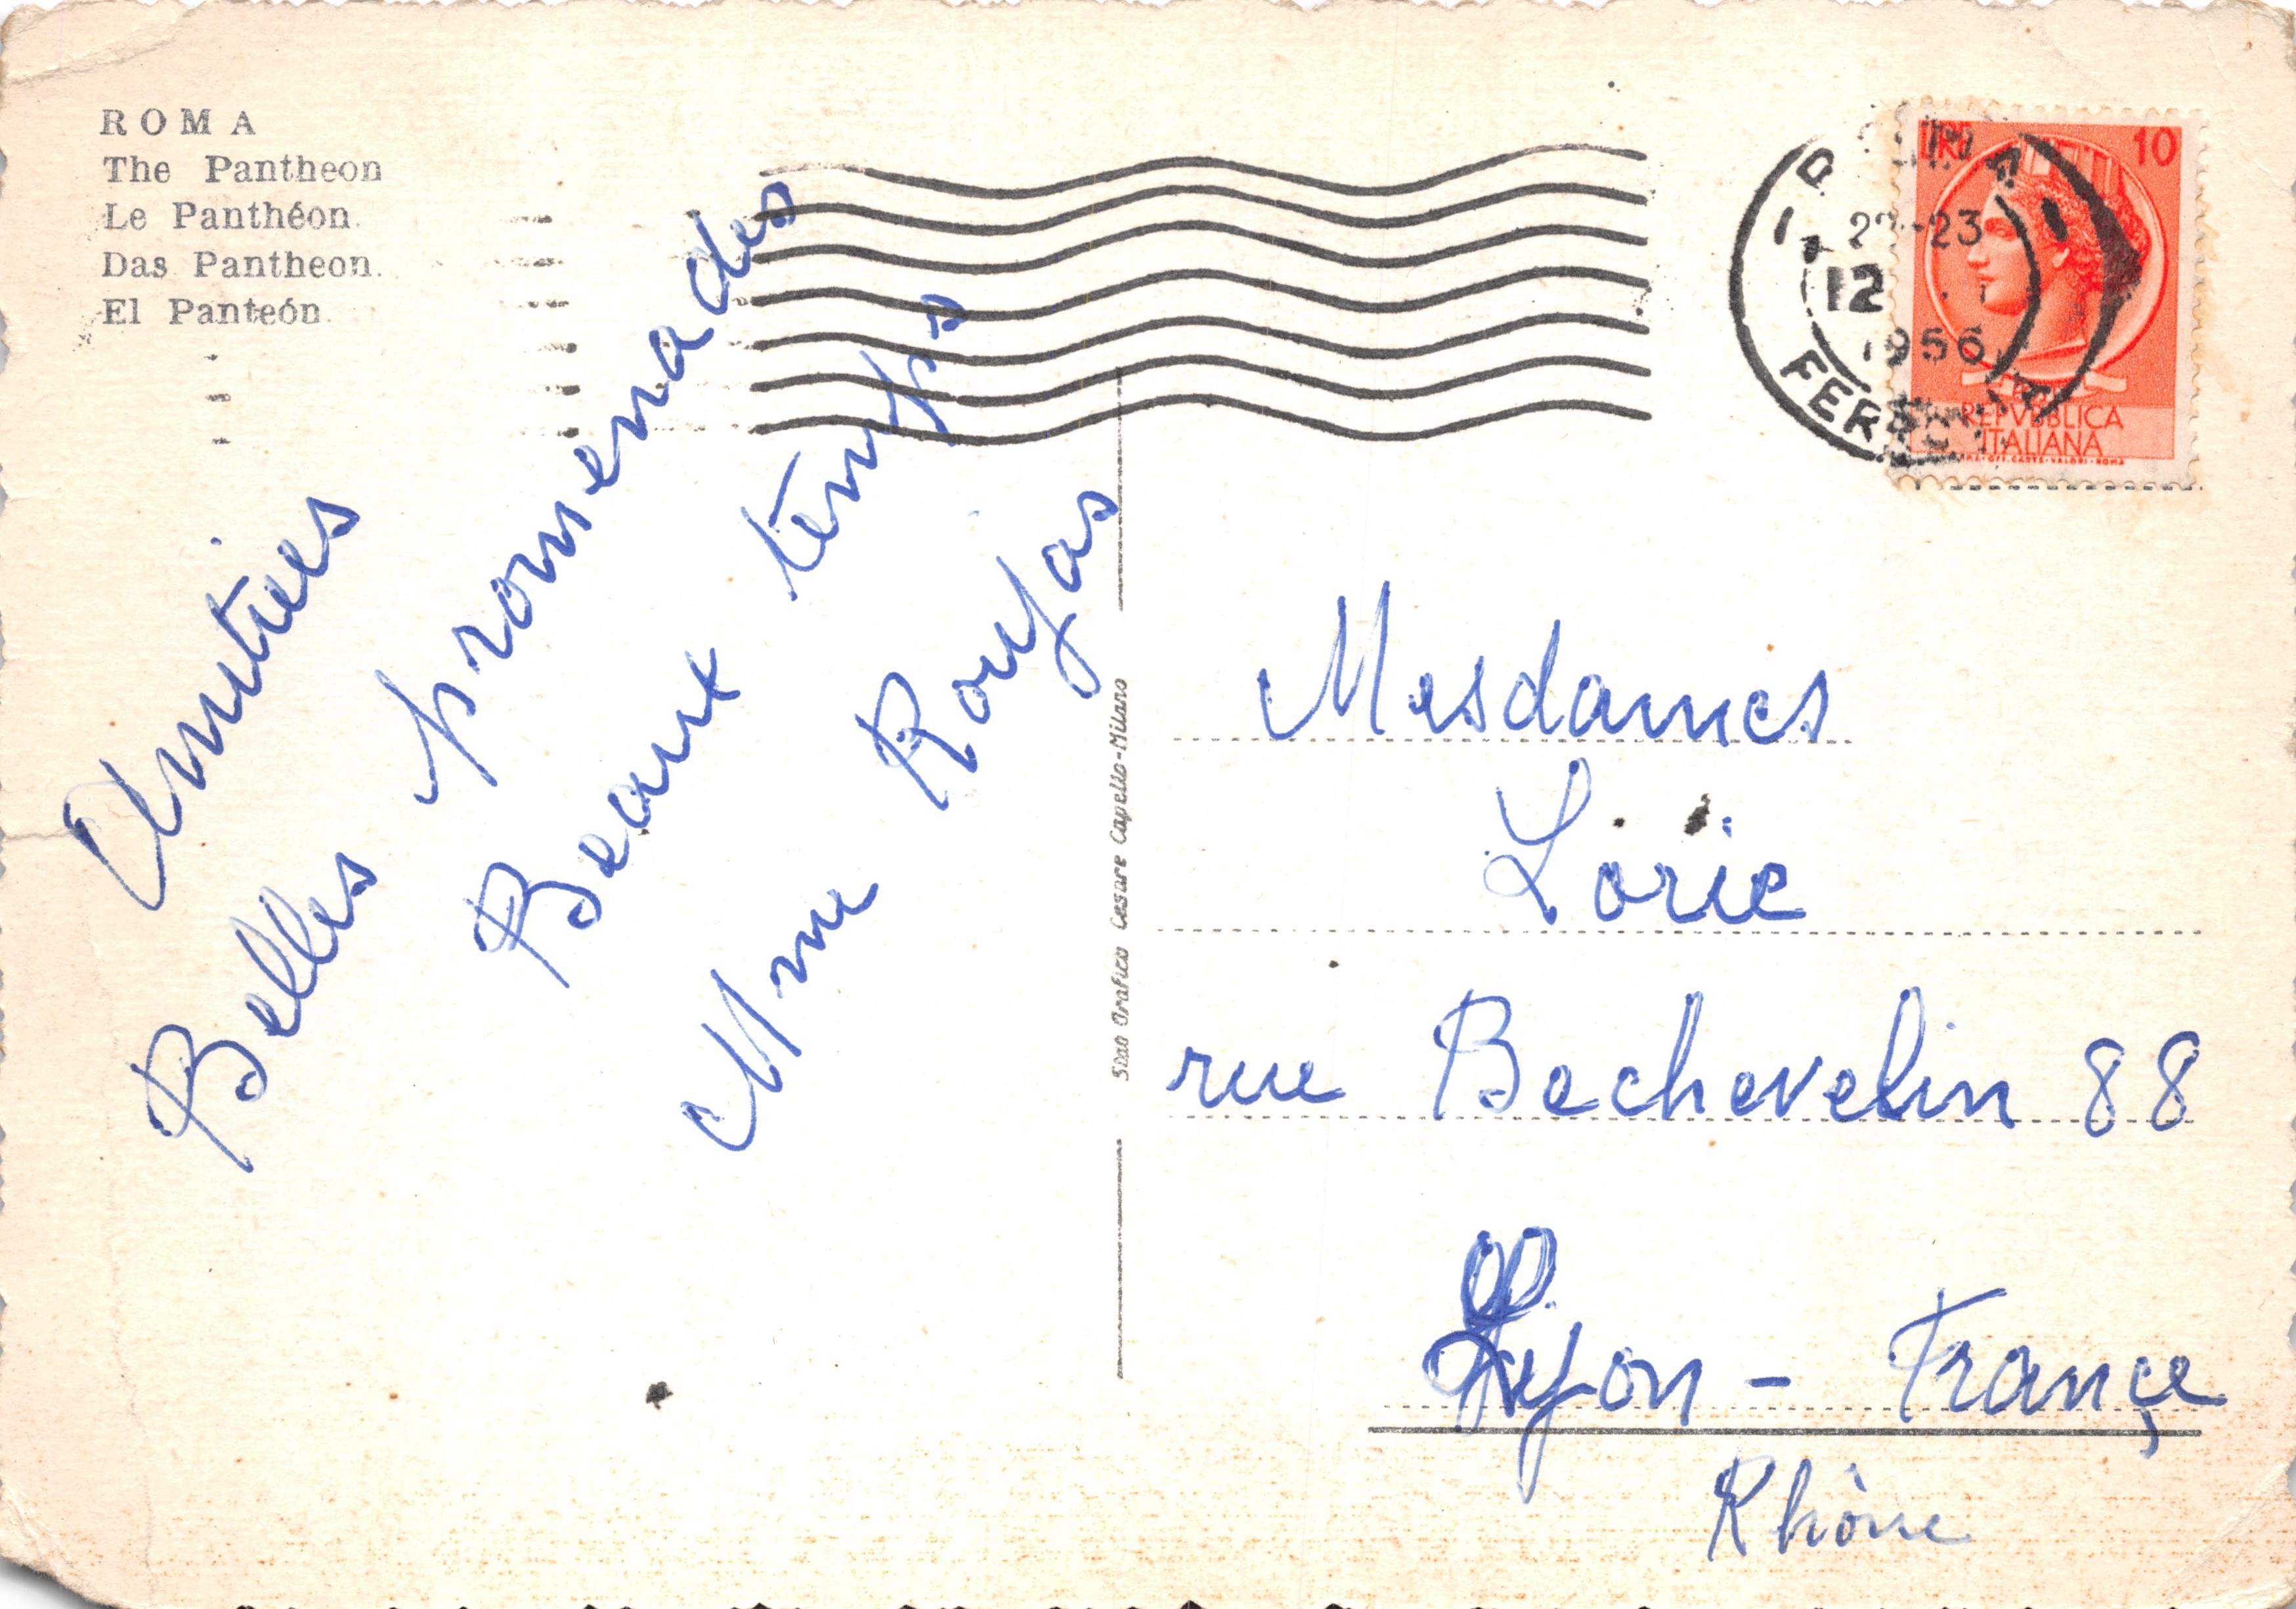 ROMA
The Pantheon
Le Panthéon
Das Pantheon
El Panteón
Amitiés
Belles promenades
Beaux temps
Mme Roujas
Stab Grafico Cesare Capello-Milano
22-23
12
1956
10
REPVBBLICA
ITALIANA
Mesdames
Lorie
rue Bechevelin 88
Lyon - Françe
Rhône